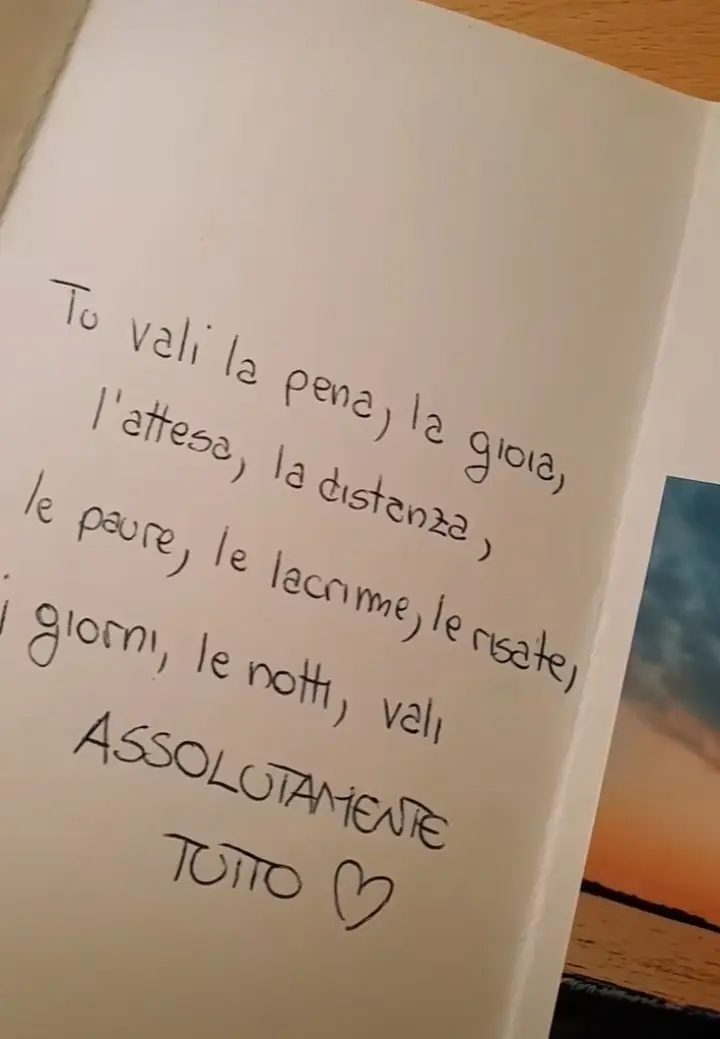 Tu vali la pena, la gioia,
l'attesa, la distanza,
le paure, le lacrime, le risate,
i giorni, le notti, vali
ASSOLUTAMENTE
TUTTO ♡